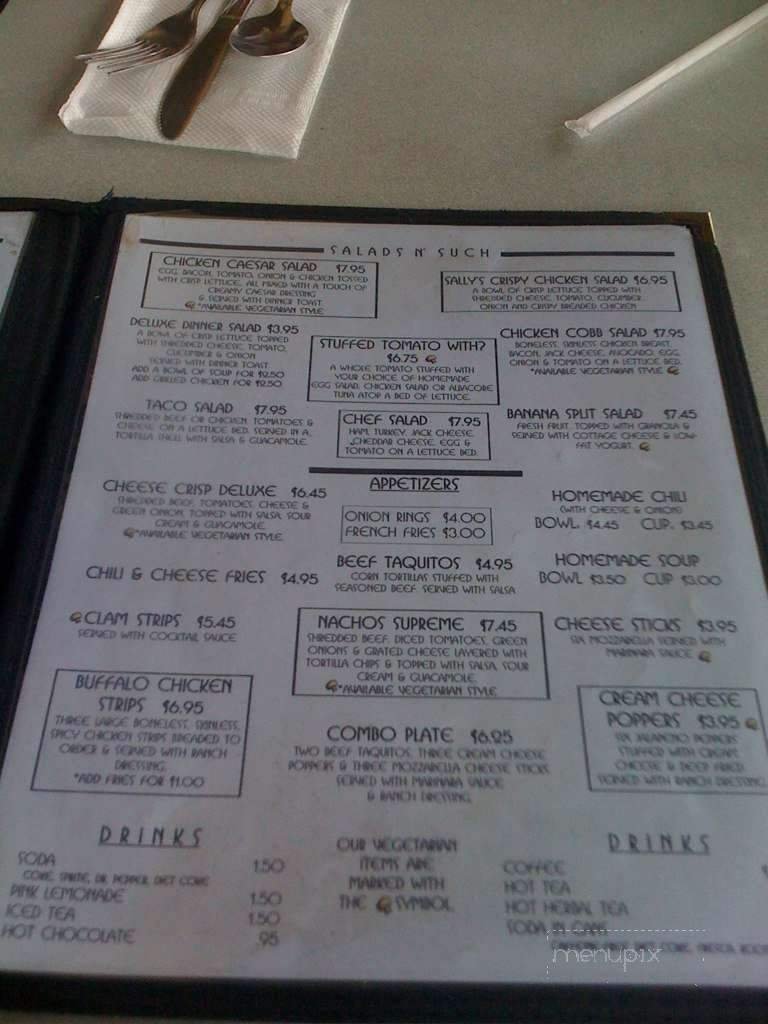 SALADS N' SUCH
CHICKEN CAESAR SALAD $7.95
EGG, BACON, TOMATO, ONION & CHICKEN TOSSED
WITH CRISP LETTUCE, ALL MIXED WITH A TOUCH OF
CREAMY CAESAR DRESSING
& SERVED WITH DINNER TOAST
*AVAILABLE VEGETARIAN STYLE
SALLY'S CRISPY CHICKEN SALAD $6.95
A BOWL OF CRISP LETTUCE TOPPED WITH
SHREDDED CHEESE, TOMATO, CUCUMBER,
ONION AND CRISPY BREADED CHICKEN
DELUXE DINNER SALAD $3.95
A BOWL OF CRISP LETTUCE TOPPED
WITH SHREDDED CHEESE, TOMATO,
CUCUMBER & ONION
SERVED WITH DINNER TOAST
ADD A BOWL OF SOUP FOR $2.50
ADD GRILLED CHICKEN FOR $2.50
STUFFED TOMATO WITH?
$6.75
A WHOLE TOMATO STUFFED WITH
YOUR CHOICE OF HOMEMADE
EGG SALAD, CHICKEN SALAD OR ALBACORE
TUNA ATOP A BED OF LETTUCE.
CHICKEN COBB SALAD $7.95
BONELESS, SKINLESS CHICKEN BREAST,
BACON, JACK CHEESE, AVOCADO, EGG,
ONION & TOMATO ON A LETTUCE BED.
*AVAILABLE VEGETARIAN STYLE
TACO SALAD $7.95
SHREDDED BEEF OR CHICKEN, TOMATOES &
CHEESE, ON A LETTUCE BED, SERVED IN A
TORTILLA SHELL WITH SALSA & GUACAMOLE.
CHEF SALAD $7.95
HAM, TURKEY, JACK CHEESE,
CHEDDAR CHEESE, EGG &
TOMATO ON A LETTUCE BED.
BANANA SPLIT SALAD $7.45
FRESH FRUIT, TOPPED WITH GRANOLA &
SERVED WITH COTTAGE CHEESE & LOW-
FAT YOGURT.
APPETIZERS
CHEESE CRISP DELUXE $6.45
SHREDDED BEEF, TOMATOES, CHEESE &
GREEN ONION, TOPPED WITH SALSA, SOUR
CREAM & GUACAMOLE.
*AVAILABLE VEGETARIAN STYLE
ONION RINGS $4.00
FRENCH FRIES $3.00
HOMEMADE CHILI
(WITH CHEESE & ONION)
BOWL $4.45 CUP $3.45
CHILI & CHEESE FRIES $4.95
BEEF TAQUITOS $4.95
CORN TORTILLAS STUFFED WITH
SEASONED BEEF, SERVED WITH SALSA
HOMEMADE SOUP
BOWL $3.50 CUP $3.00
CLAM STRIPS $5.45
SERVED WITH COCKTAIL SAUCE
NACHOS SUPREME $7.45
SHREDDED BEEF, DICED TOMATOES, GREEN
ONIONS & GRATED CHEESE LAYERED WITH
TORTILLA CHIPS & TOPPED WITH SALSA, SOUR
CREAM & GUACAMOLE
*AVAILABLE VEGETARIAN STYLE
CHEESE STICKS $3.95
SIX MOZZARELLA SERVED WITH
MARINARA SAUCE
BUFFALO CHICKEN
STRIPS $6.95
THREE LARGE BONELESS, SKINLESS,
SPICY CHICKEN STRIPS BREADED TO
ORDER & SERVED WITH RANCH
DRESSING.
*ADD FRIES FOR $1.00
COMBO PLATE $6.25
TWO BEEF TAQUITOS, THREE CREAM CHEESE
POPPERS & THREE MOZZARELLA CHEESE STICKS
SERVED WITH MARINARA SAUCE
& RANCH DRESSING
CREAM CHEESE
POPPERS $3.95
SIX JALAPENO PEPPERS
STUFFED WITH CREAM
CHEESE & DEEP FRIED.
SERVED WITH RANCH DRESSING
DRINKS
SODA 1.50
COKE, SPRITE, DR. PEPPER, DIET COKE
PINK LEMONADE 1.50
ICED TEA 1.50
HOT CHOCOLATE .95
OUR VEGETARIAN
ITEMS ARE
MARKED WITH
THE SYMBOL
DRINKS
COFFEE
HOT TEA
HOT HERBAL TEA
SODA
menupix